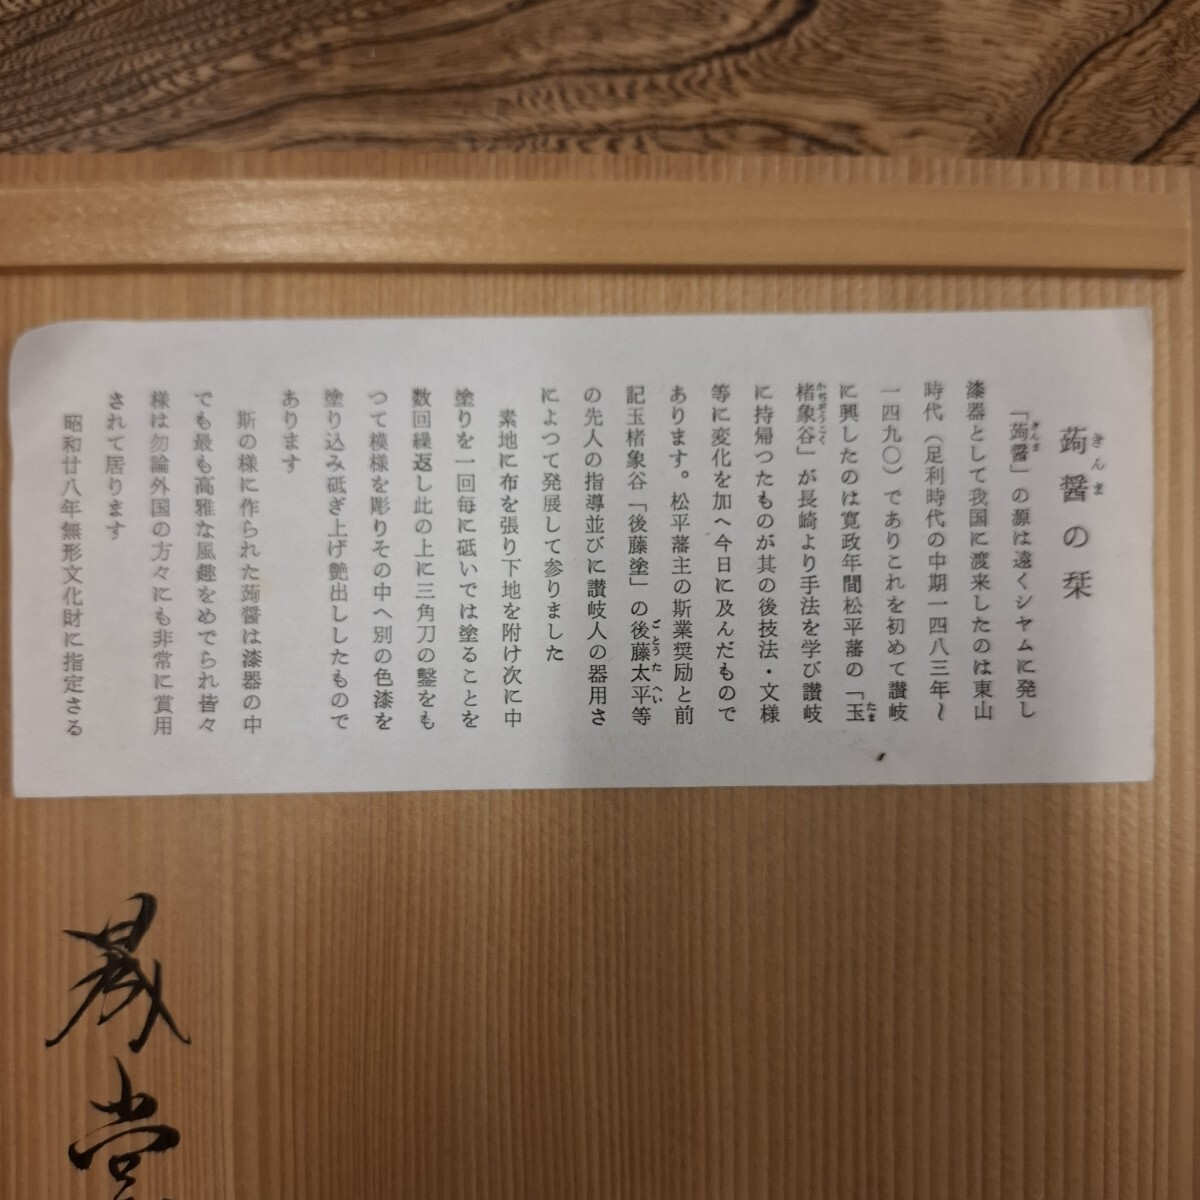 蒟醤の栞
「蒟醤」の源は遠くシヤムに発し
漆器として我国に渡来したのは東山
時代（足利時代の中期一四八三年〜
一四九〇）でありこれを初めて讃岐
に興したのは寛政年間松平藩の「玉
楮象谷」が長崎より手法を学び讃岐
に持帰つたものが其の後技法・文様
等に変化を加へ今日に及んだもので
あります。松平藩主の斯業奨励と前
記玉楮象谷「後藤塗」の後藤太平等
の先人の指導並びに讃岐人の器用さ
によつて発展して参りました
素地に布を張り下地を附け次に中
塗りを一回毎に砥いでは塗ることを
数回繰返し此の上に三角刀の鑿をも
つて模様を彫りその中へ別の色漆を
塗り込み砥ぎ上げ艶出ししたもので
あります
斯の様に作られた蒟醤は漆器の中
でも最も高雅な風趣をめでられ皆々
様は勿論外国の方々にも非常に賞用
されて居ります
昭和廿八年無形文化財に指定さる
晸堂